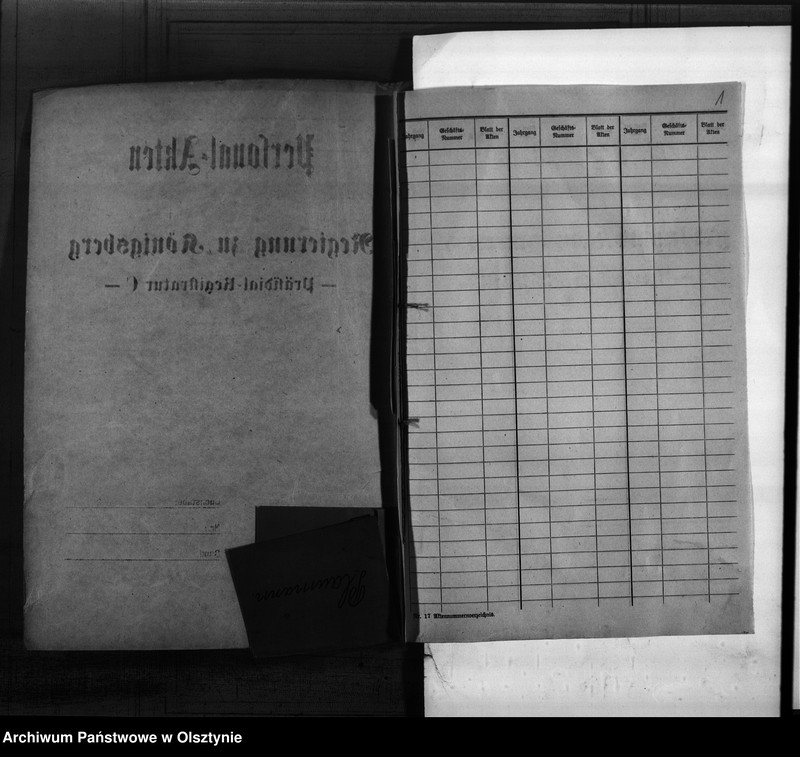 Personal-Akten
Regierung zu Königsberg
— Präsidial-Registratur (
Nr.
Band
1
Jahrgang Geschäfts-Nummer Blatt der Akten Jahrgang Geschäfts-Nummer Blatt der Akten Jahrgang Geschäfts-Nummer Blatt der Akten
Nr. 17 Aktennummerverzeichnis.
Archiwum Państwowe w Olsztynie